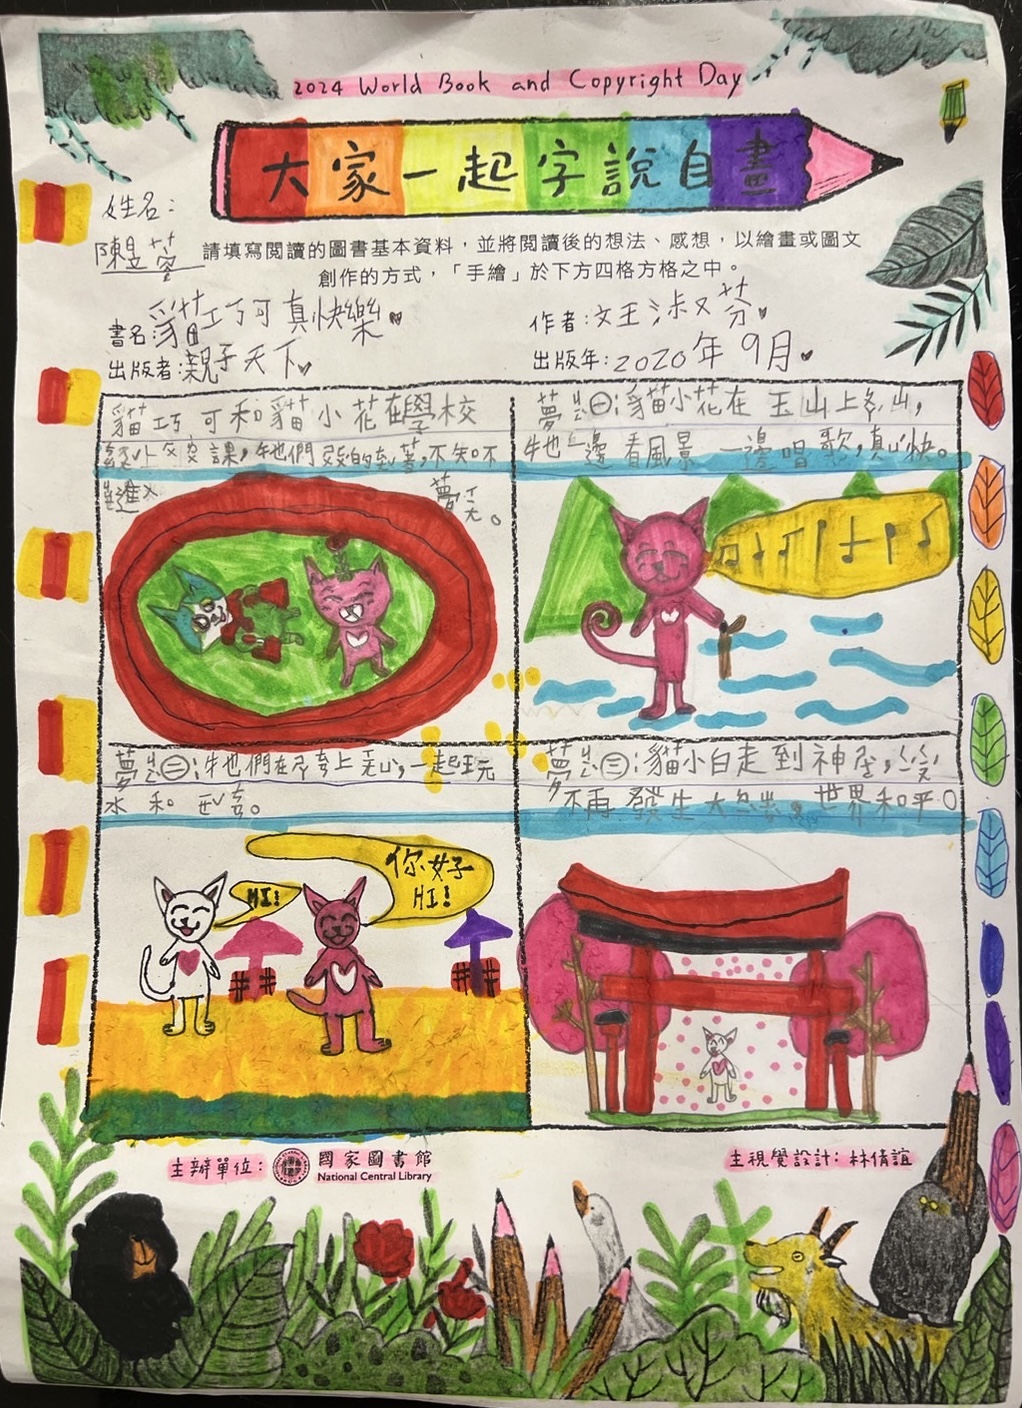 2024 World Book and Copyright Day
大家一起字說自畫
姓名：
陳昱蓉
請填寫閱讀的圖書基本資料，並將閱讀後的想法、感想，以繪畫或圖文
創作的方式，「手繪」於下方四格方格之中。
書名：貓巧可真快樂
作者：文王淑芬
出版者：親子天下
出版年：2020年9月
貓巧可和貓小花在學校
課，牠們 著，不知不
進入 夢
夢 ㊀：貓小花在玉山上
牠一邊看風景一邊唱歌，真 快。
夢 ㊁：牠們在 上 ，一起玩
水和 。
夢 ㊂：貓小白走到神 ，
不再發生大 ，世界和平。
HI!
你好
HI!
主辦單位：
國家圖書館
National Central Library
主視覺設計：林倩誼